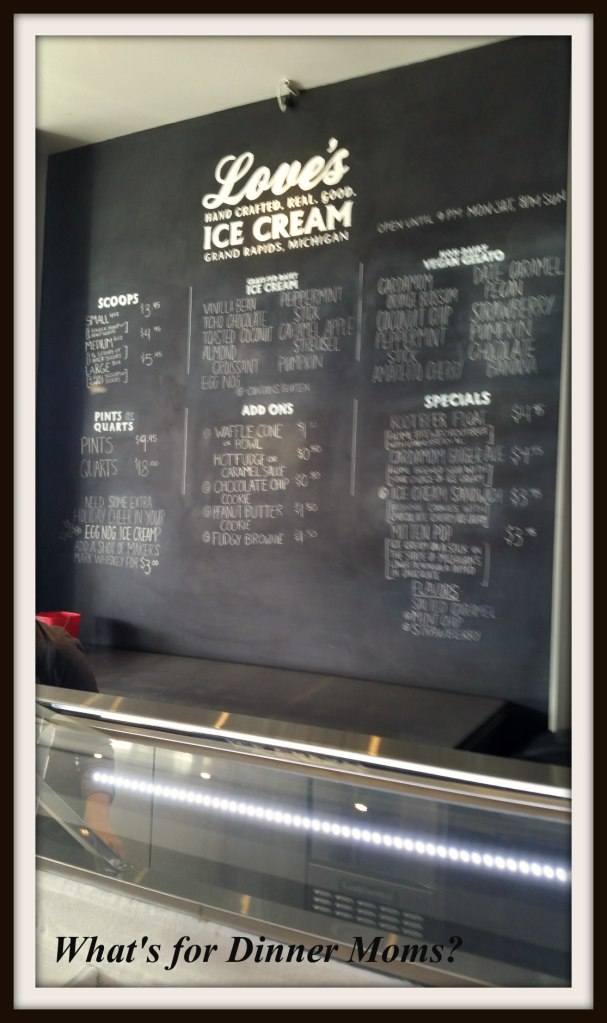 Love's
HAND CRAFTED. REAL. GOOD.
ICE CREAM
GRAND RAPIDS, MICHIGAN
OPEN UNTIL 9 PM MON-SAT, 8PM SUN
SCOOPS
SMALL $3.95
MEDIUM $4.95
LARGE $5.45
PINTS &
QUARTS
PINTS $9.95
QUARTS $18.00
NEED SOME EXTRA
HOLIDAY CHEER IN YOUR
EGG NOG ICE CREAM?
ADD A SHOT OF MAKER'S
MARK WHISKEY FOR $3.00
ICE CREAM
VANILLA BEAN
TCHO CHOCOLATE
TOASTED COCONUT
ALMOND
CROISSANT
EGG NOG
PEPPERMINT
STICK
CARAMEL APPLE
STREUSEL
PUMPKIN
CONTAINS GLUTEN
ADD ONS
WAFFLE CONE
OR BOWL
HOT FUDGE OR
CARAMEL SAUCE
CHOCOLATE CHIP
COOKIE
PEANUT BUTTER
COOKIE
FUDGY BROWNIE
VEGAN GELATO
CARDAMOM
ORANGE BLOSSOM
COCONUT CHIP
PEPPERMINT
STICK
AMARETTO CHERRY
DATE CARAMEL
PECAN
STRAWBERRY
PUMPKIN
CHOCOLATE
BANANA
SPECIALS
ROOT BEER FLOAT $4.95
CARDAMOM GINGER ALE $4.95
ICE CREAM SANDWICH $3.95
MITTEN POP $3.95
FLAVORS
SALTED CARAMEL
MINT CHIP
STRAWBERRY
What's for Dinner Moms?